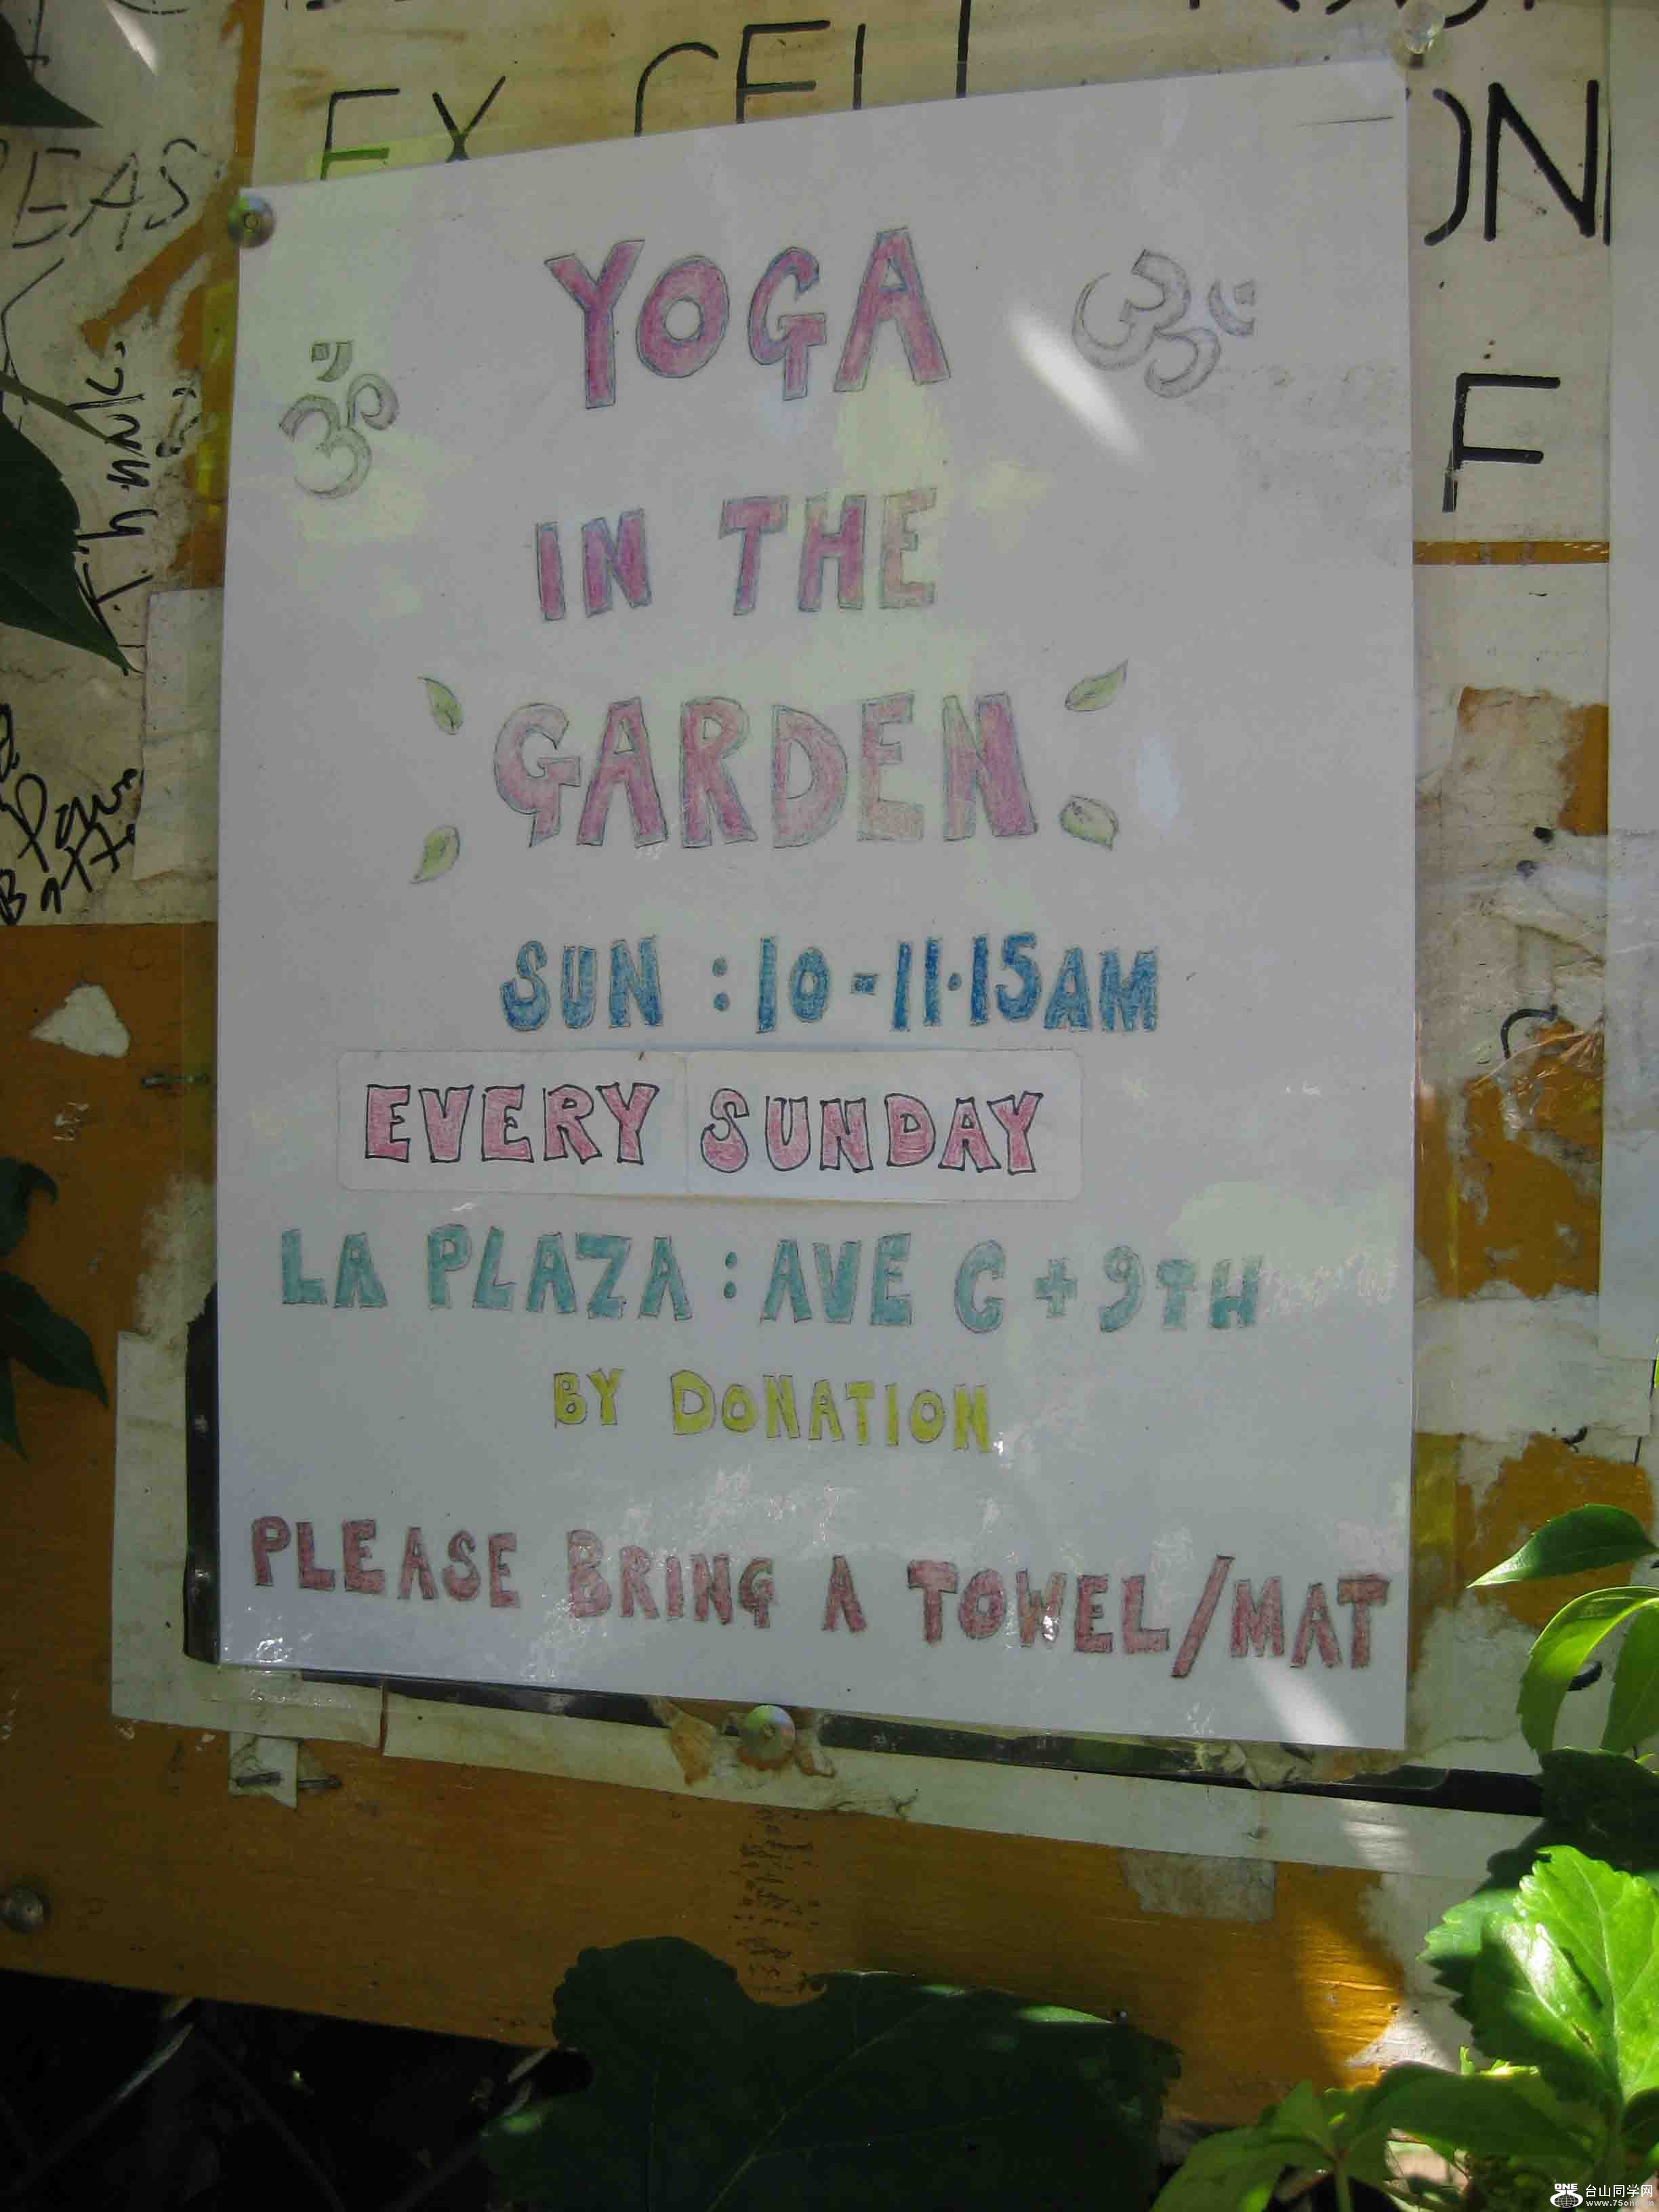 EX CELL
ON
EAS
F
Thank
YOGA
IN THE
GARDEN
SUN : 10 - 11.15AM
EVERY SUNDAY
LA PLAZA : AVE C + 9TH
BY DONATION
PLEASE BRING A TOWEL/MAT
ONE 台山同学网
www.75one.cn